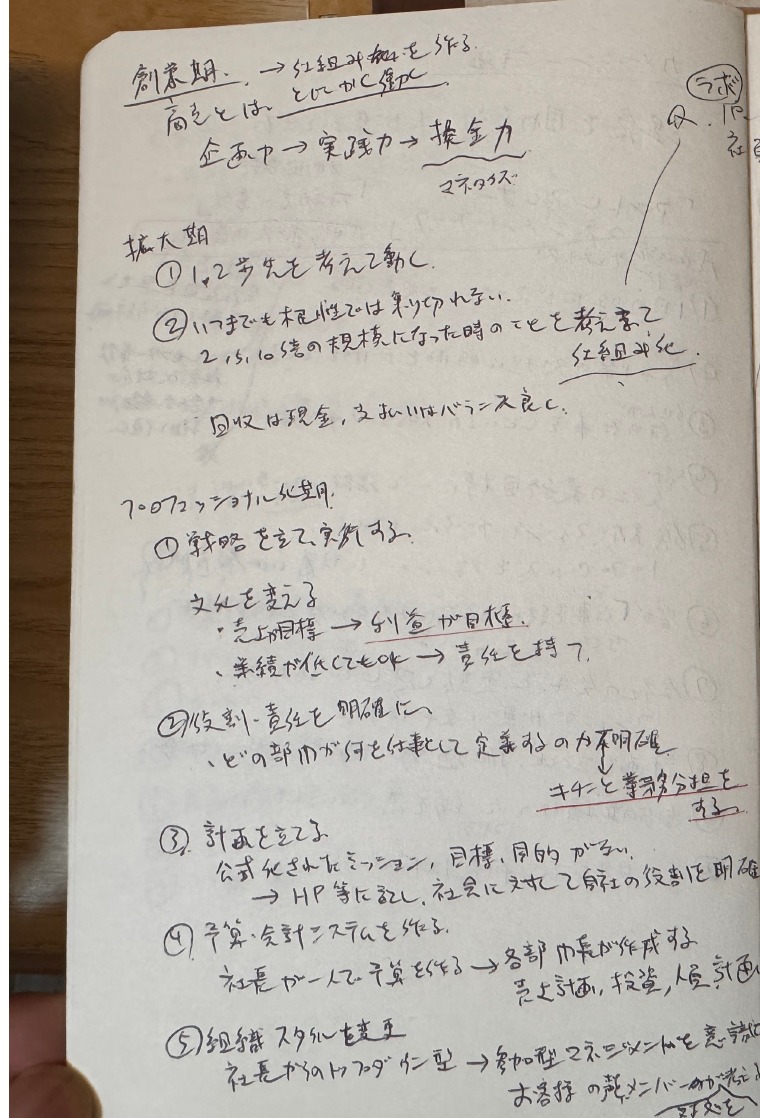 創業期. → 仕組みを作る.
とにかく働く
商売とは、
企画力 → 実践力 → 換金力
マネタイズ
ラボ
Q. IP
社員
拡大期
① 1,2歩先を考えて動く.
② いつまでも根性では乗り切れない.
2,5,10倍の規模になった時のことを考えて
仕組み化.
回収は現金,支払いはバランス良く.
プロフェッショナル化期.
① 戦略を立て、実行する.
文化を変える
・売上が目標 → 利益が目標.
・業績が低くてもOK → 責任を持つ.
② 役割・責任を明確に、
、どの部門が何を仕事として定義するのか不明確
↓
キチンと業務分担を
する
③. 計画を立てる
公式化されたミッション, 目標、目的がない.
→ HP等に記し、社会に対して自社の役割を明確
④ 予算・会計システムを作る.
社長が一人で予算を作る → 各部門長が作成する
売上計画, 投資, 人員計画
⑤ 組織スタイルを変更
社長からのトップダウン型 → 参加型マネジメントを意識
お客様の メンバー が考え